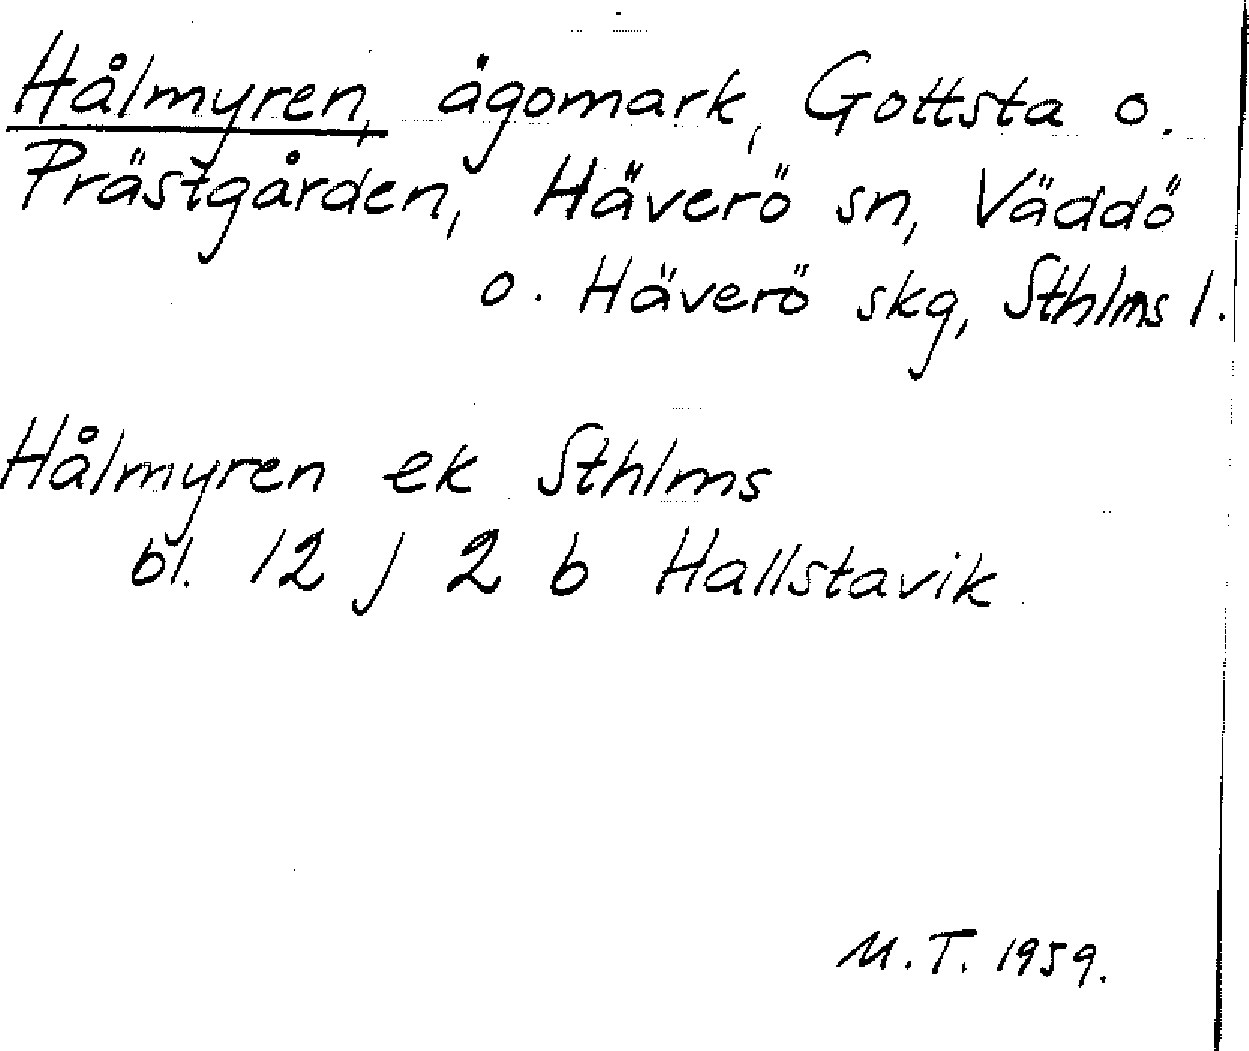 Hålmyren, ägomark, Gottsta o.
Prästgården, Häverö sn, Väddö
o. Häverö skg, Sthlms l.
Hålmyren ek Sthlms
bl. 12 j 2 b Hallstavik
M.T. 1959.